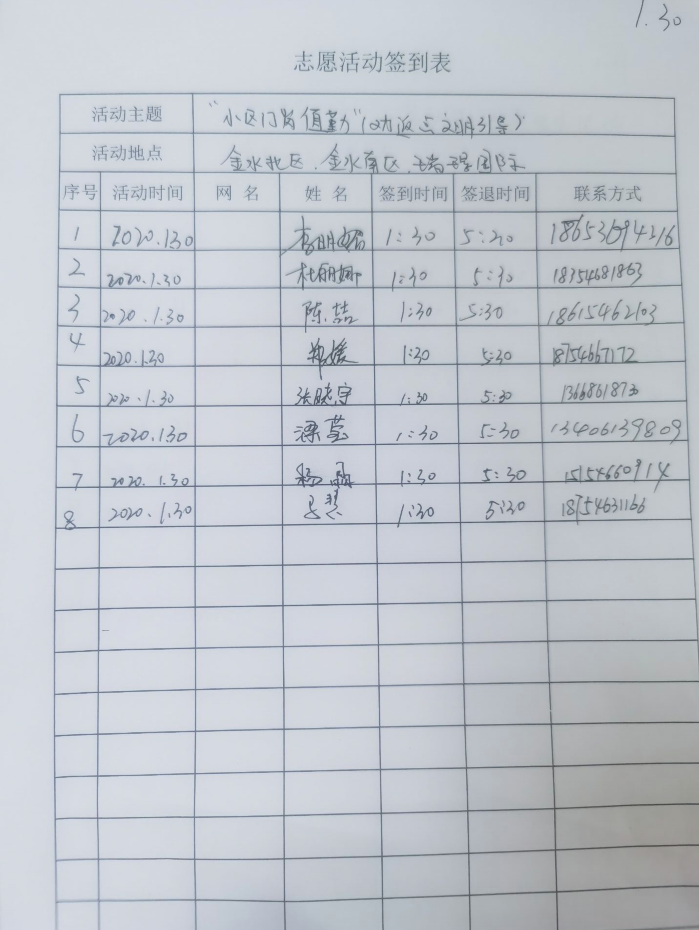 1.30
志愿活动签到表
活动主题 "小区门岗值勤"(劝返点文明引导)
活动地点 金水北区.金水南区.国际
序号 活动时间 网名 姓名 签到时间 签退时间 联系方式
1 2020.1.30 李明 1:30 5:30 18653694216
2 2020.1.30 杜丽娜 1:30 5:30 18754681863
3 2020.1.30 陈喆 1:30 5:30 18615462103
4 2020.1.30 郑媛 1:30 5:30 18754667172
5 2020.1.30 张晓宇 1:30 5:30
6 2020.1.30 谭莹 1:30 5:30 13406139809
7 2020.1.30 杨 1:30 5:30 15154660914
8 2020.1.30 1:30 5:30 18754631166